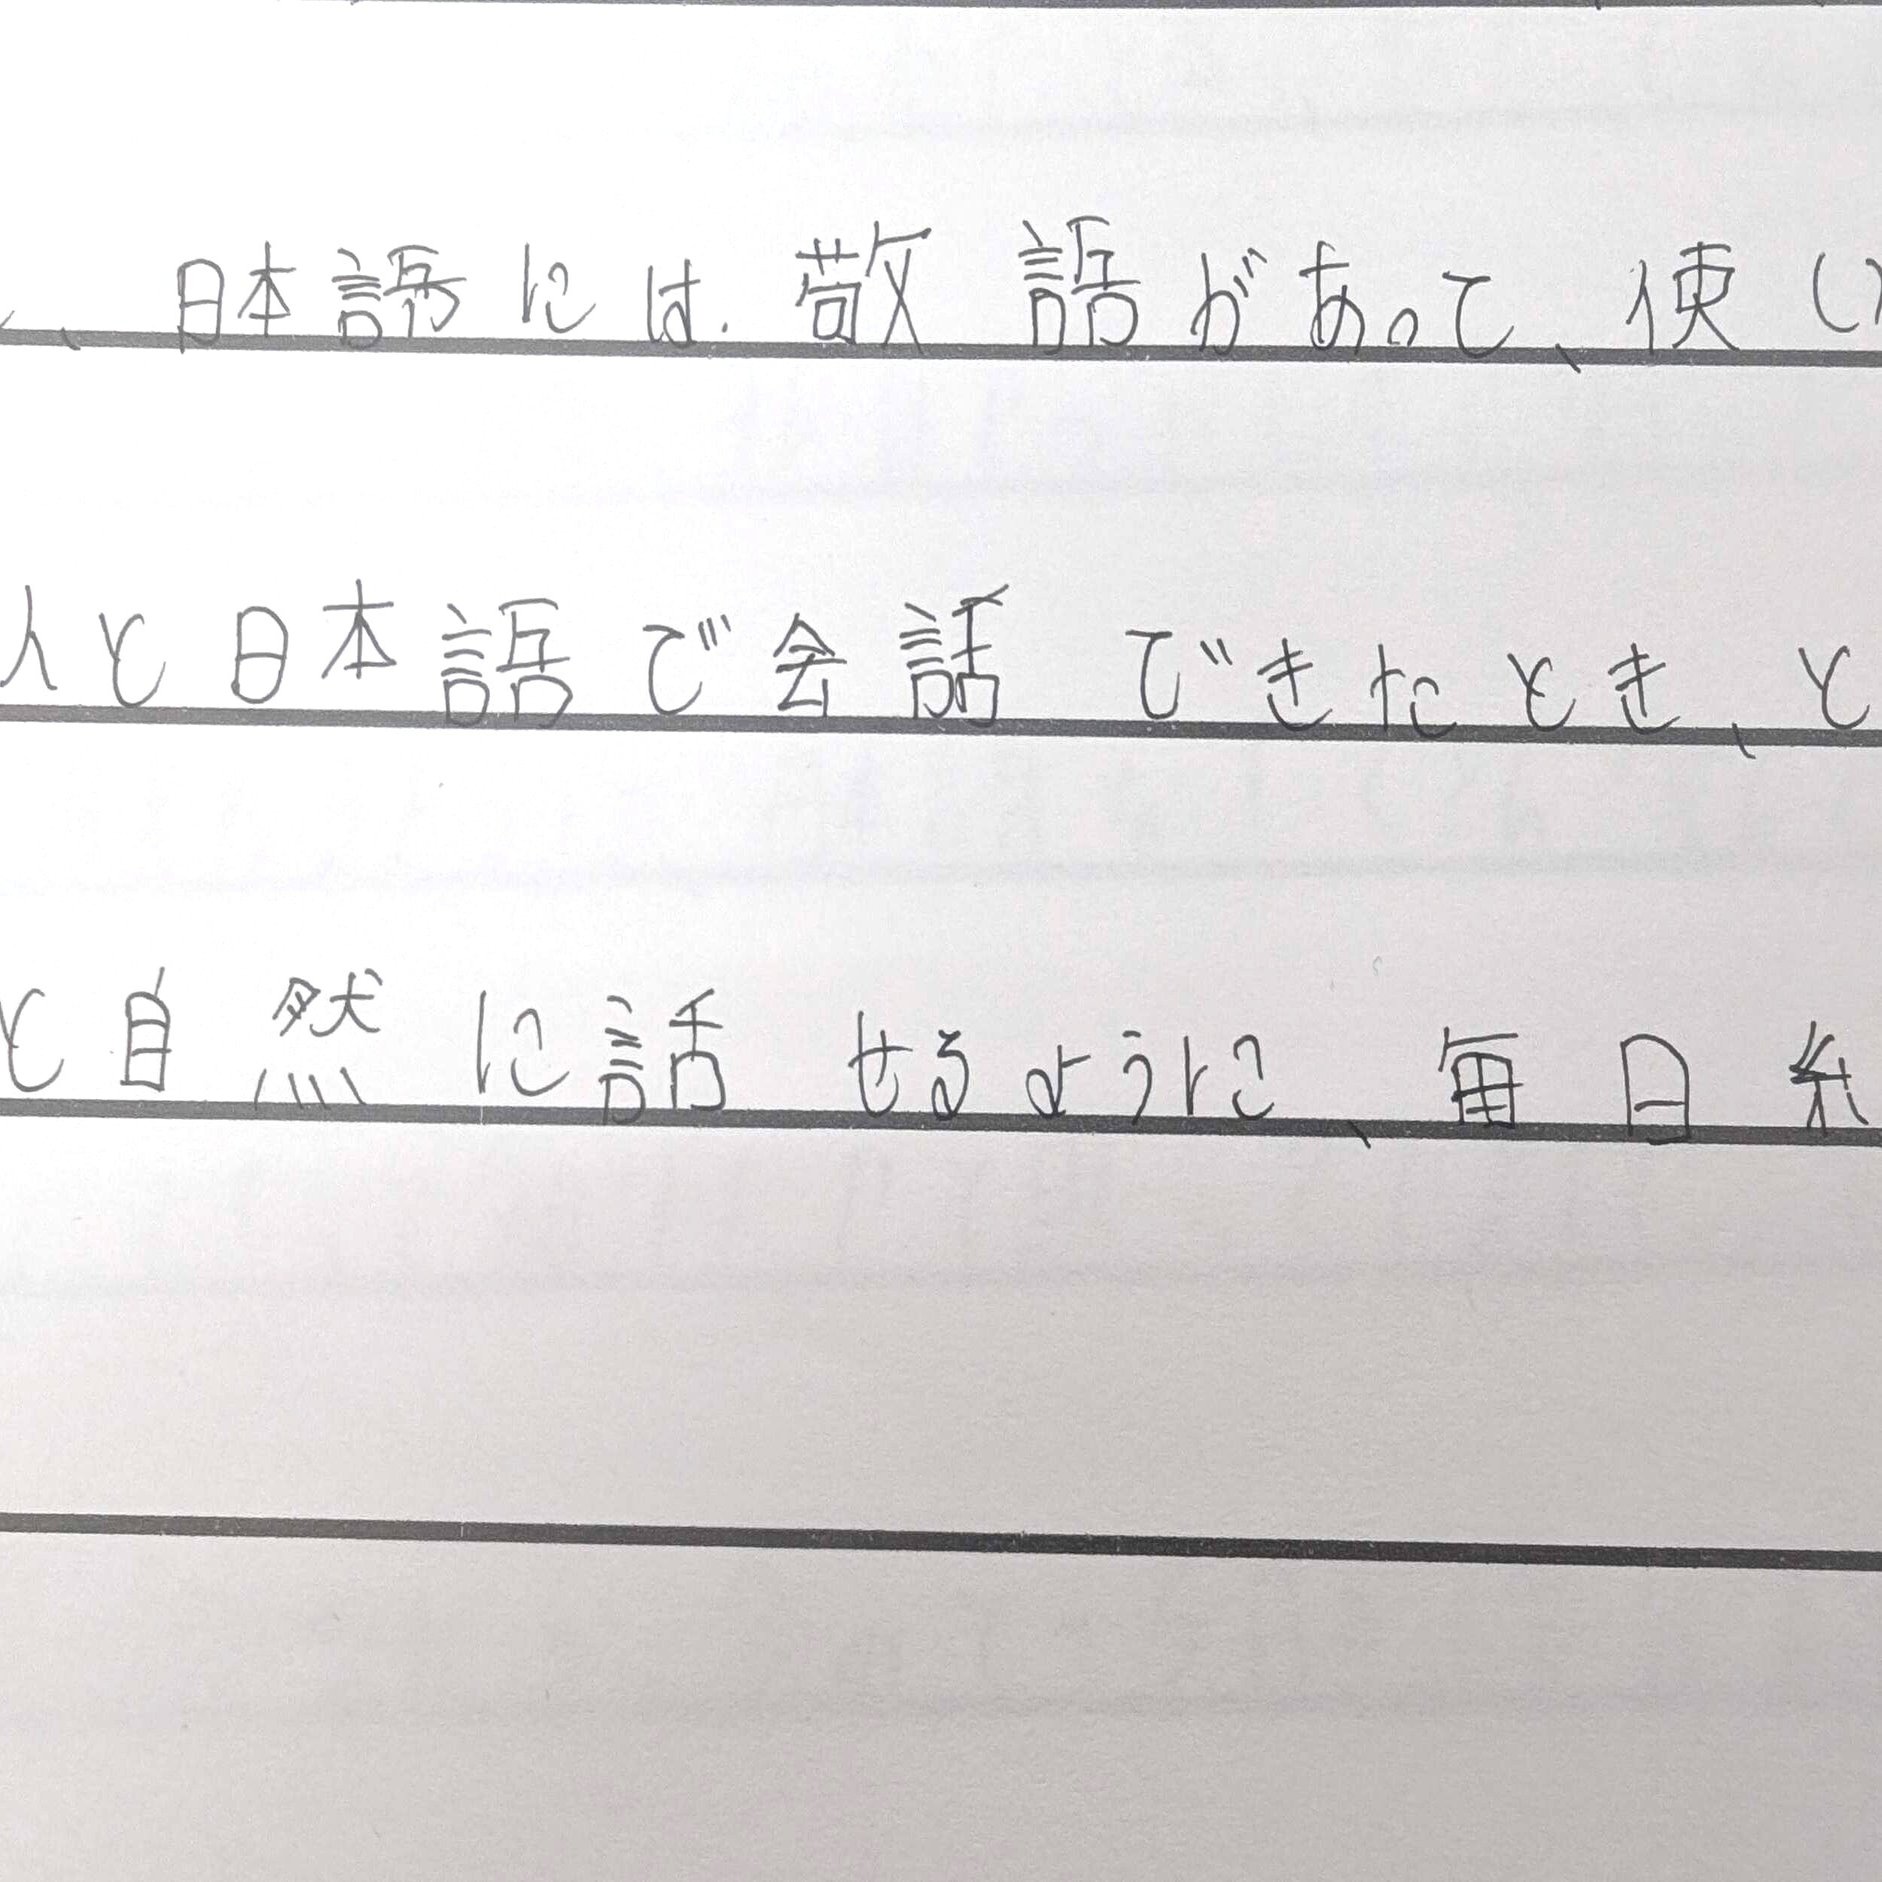 、日本語には.敬語があって、使い
人と日本語で会話できたとき、と
と自然に話せるように、毎日